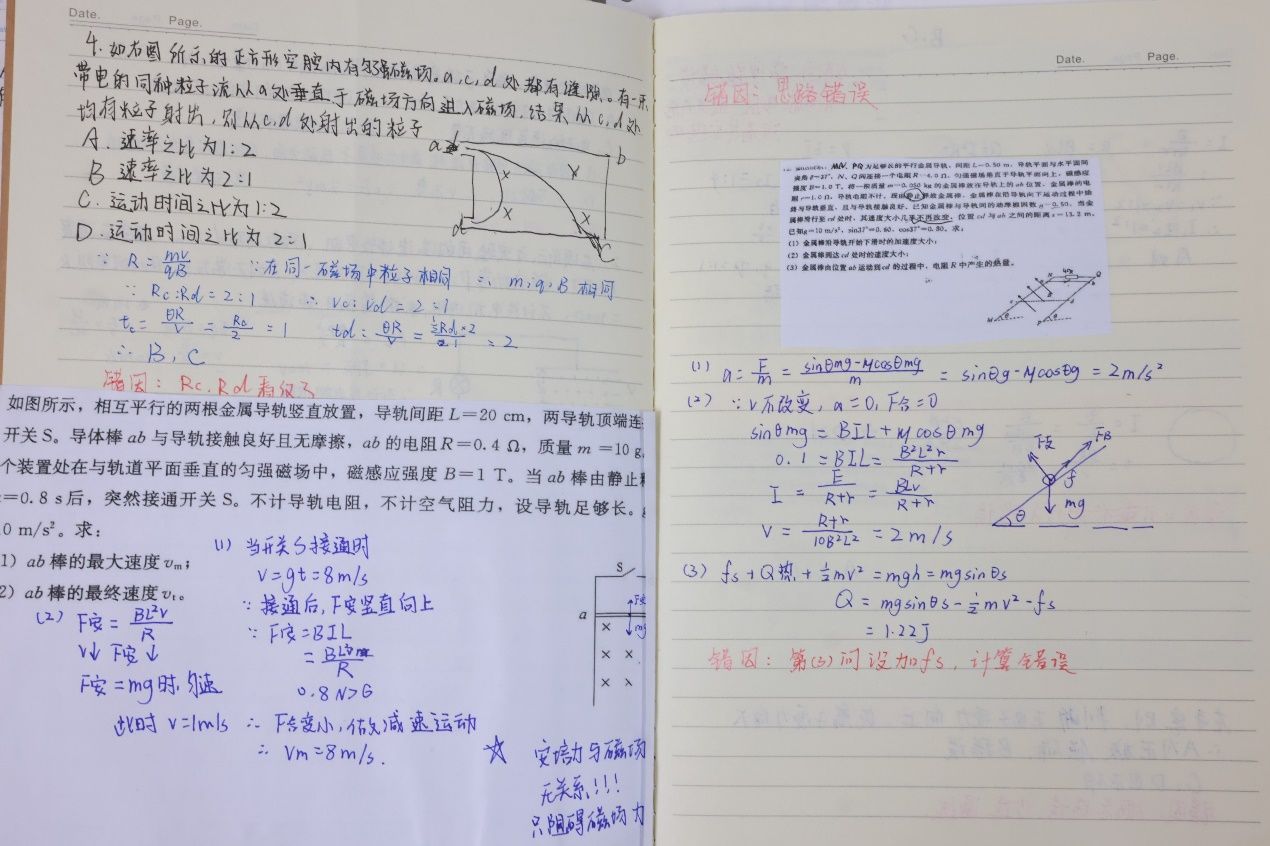 Date. Page.
4. 如右图所示的正方形空腔内有匀强磁场。a,c,d处都有缝隙。有一束
带电的同种粒子流从a处垂直于磁场方向进入磁场,结果从c,d处
均有粒子射出,则从c,d处射出的粒子
A. 速率之比为1:2
B 速率之比为2:1
C. 运动时间之比为1:2
D. 运动时间之比为2:1
a b
d c
∵ R = mv/qB ∵在同一磁场中粒子相同 ∴ m,q,B相同
∵ Rc:Rd = 2:1 ∴ vc:vd = 2:1
tc = θR/v = Rc/2 = 1 td: θR/v
= 2
∴ B, C
错因: Rc, Rd看反了
如图所示,相互平行的两根金属导轨竖直放置,导轨间距L=20 cm,两导轨顶端连
开关S。导体棒ab与导轨接触良好且无摩擦,ab的电阻R=0.4 Ω,质量m=10 g
个装置处在与轨道平面垂直的匀强磁场中,磁感应强度B=1 T。当ab棒由静止
=0.8 s后,突然接通开关S。不计导轨电阻,不计空气阻力,设导轨足够长。g
0 m/s²。求:
1) ab棒的最大速度vm;
2) ab棒的最终速度vt。
S
a
F安
mg
(1) 当开关S接通时
v=gt=8m/s
∵接通后,F安竖直向上
∵ F安=BIL
0.8N>G
∴ F合变小,做减速运动
∴ Vm=8m/s.
(2) F安 = BL²v/R
v↓ F安↓
F安=mg时,匀速
此时 v=1m/s
☆ 安培力与磁场
无关系!!!
只阻碍磁场力
Date. Page.
错因: 思路错误
MN、PQ为足够长的平行金属导轨,间距L=0.50 m,导轨平面与水平面间
夹角θ=37°,N、Q间连接一个电阻R=4.0 Ω,匀强磁场垂直于导轨平面向上,磁感应
强度B=1.0 T。将一根质量m=0.050 kg的金属棒放在导轨上的ab位置,金属棒的电
阻r=1.0 Ω,导轨电阻不计。现由静止释放金属棒,金属棒在沿导轨向下运动过程中始
终与导轨垂直,且与导轨接触良好。已知金属棒与导轨间的动摩擦因数μ=0.50,当金
属棒滑行至cd处时,其速度大小几乎不再改变,位置cd与ab之间的距离s=13.2 m。
已知g=10 m/s²,sin37°=0.60,cos37°=0.80。求:
(1)金属棒沿导轨开始下滑时的加速度大小;
(2)金属棒到达cd处时的速度大小;
(3)金属棒由位置ab运动到cd的过程中,电阻R中产生的热量。
(1) a = F/m = (sinθmg-μcosθmg)/m = sinθg-μcosθg = 2m/s²
(2) ∵ v不改变, a=0, F合=0
sinθmg = BIL+μcosθmg
0.1 = BIL = B²L²v/(R+r)
I = E/(R+r) = BLv/(R+r)
V = (R+r)/(10B²L²) = 2m/s
F支 FB
f
mg
θ
(3) fs + Q热 + ½mv² = mgh = mgsinθs
Q = mgsinθs - ½mv² - fs
= 1.22J
错因: 第(3)问没加fs, 计算错误